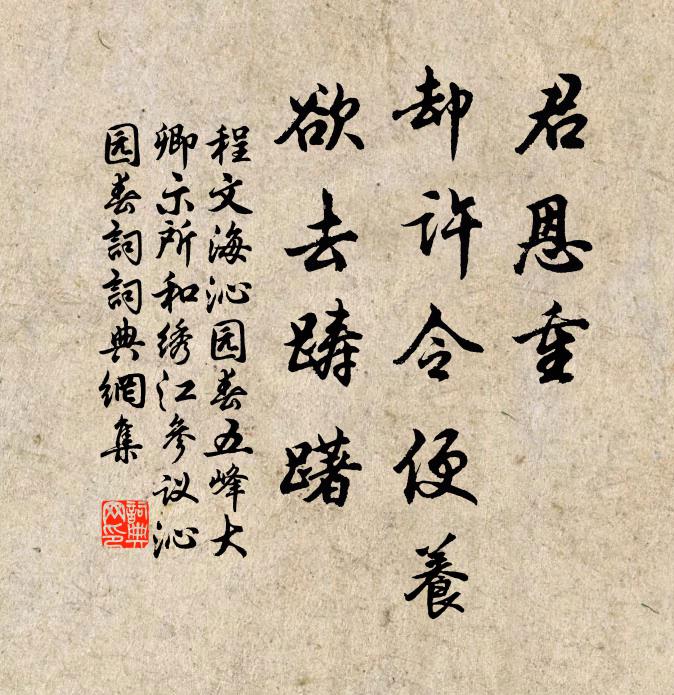 君恩重
却许令便養
欲去踌躇
程文海沁园春五峰大
卿示所和绣江參议沁
园春詞詞典網集
詞典網印